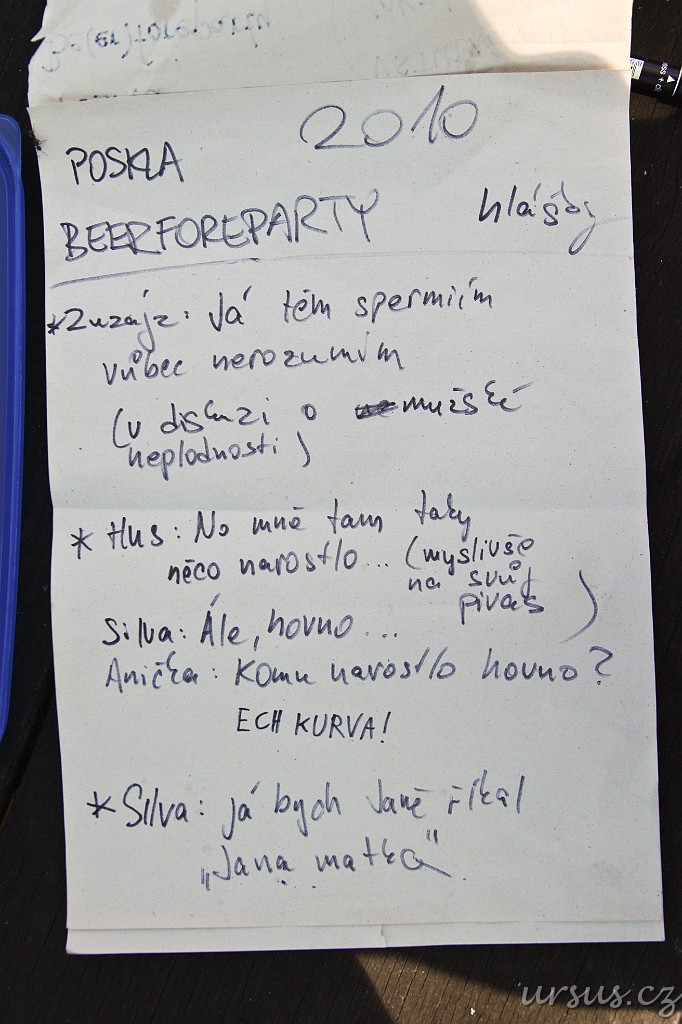 2010
POSKLA
BEERFOREPARTY hlášky
*Zuzájz: Já těm spermiím
vůbec nerozumím
(v diskuzi o mužské
neplodnosti)
* Hus: No mně tam taky
něco narostlo... (myslivše
na svůj
pivas)
Silva: Ále, hovno...
Anička: Komu narostlo hovno?
ECH KURVA!
*Silva: já bych Janě říkal
„Jana matka"
ursus.cz